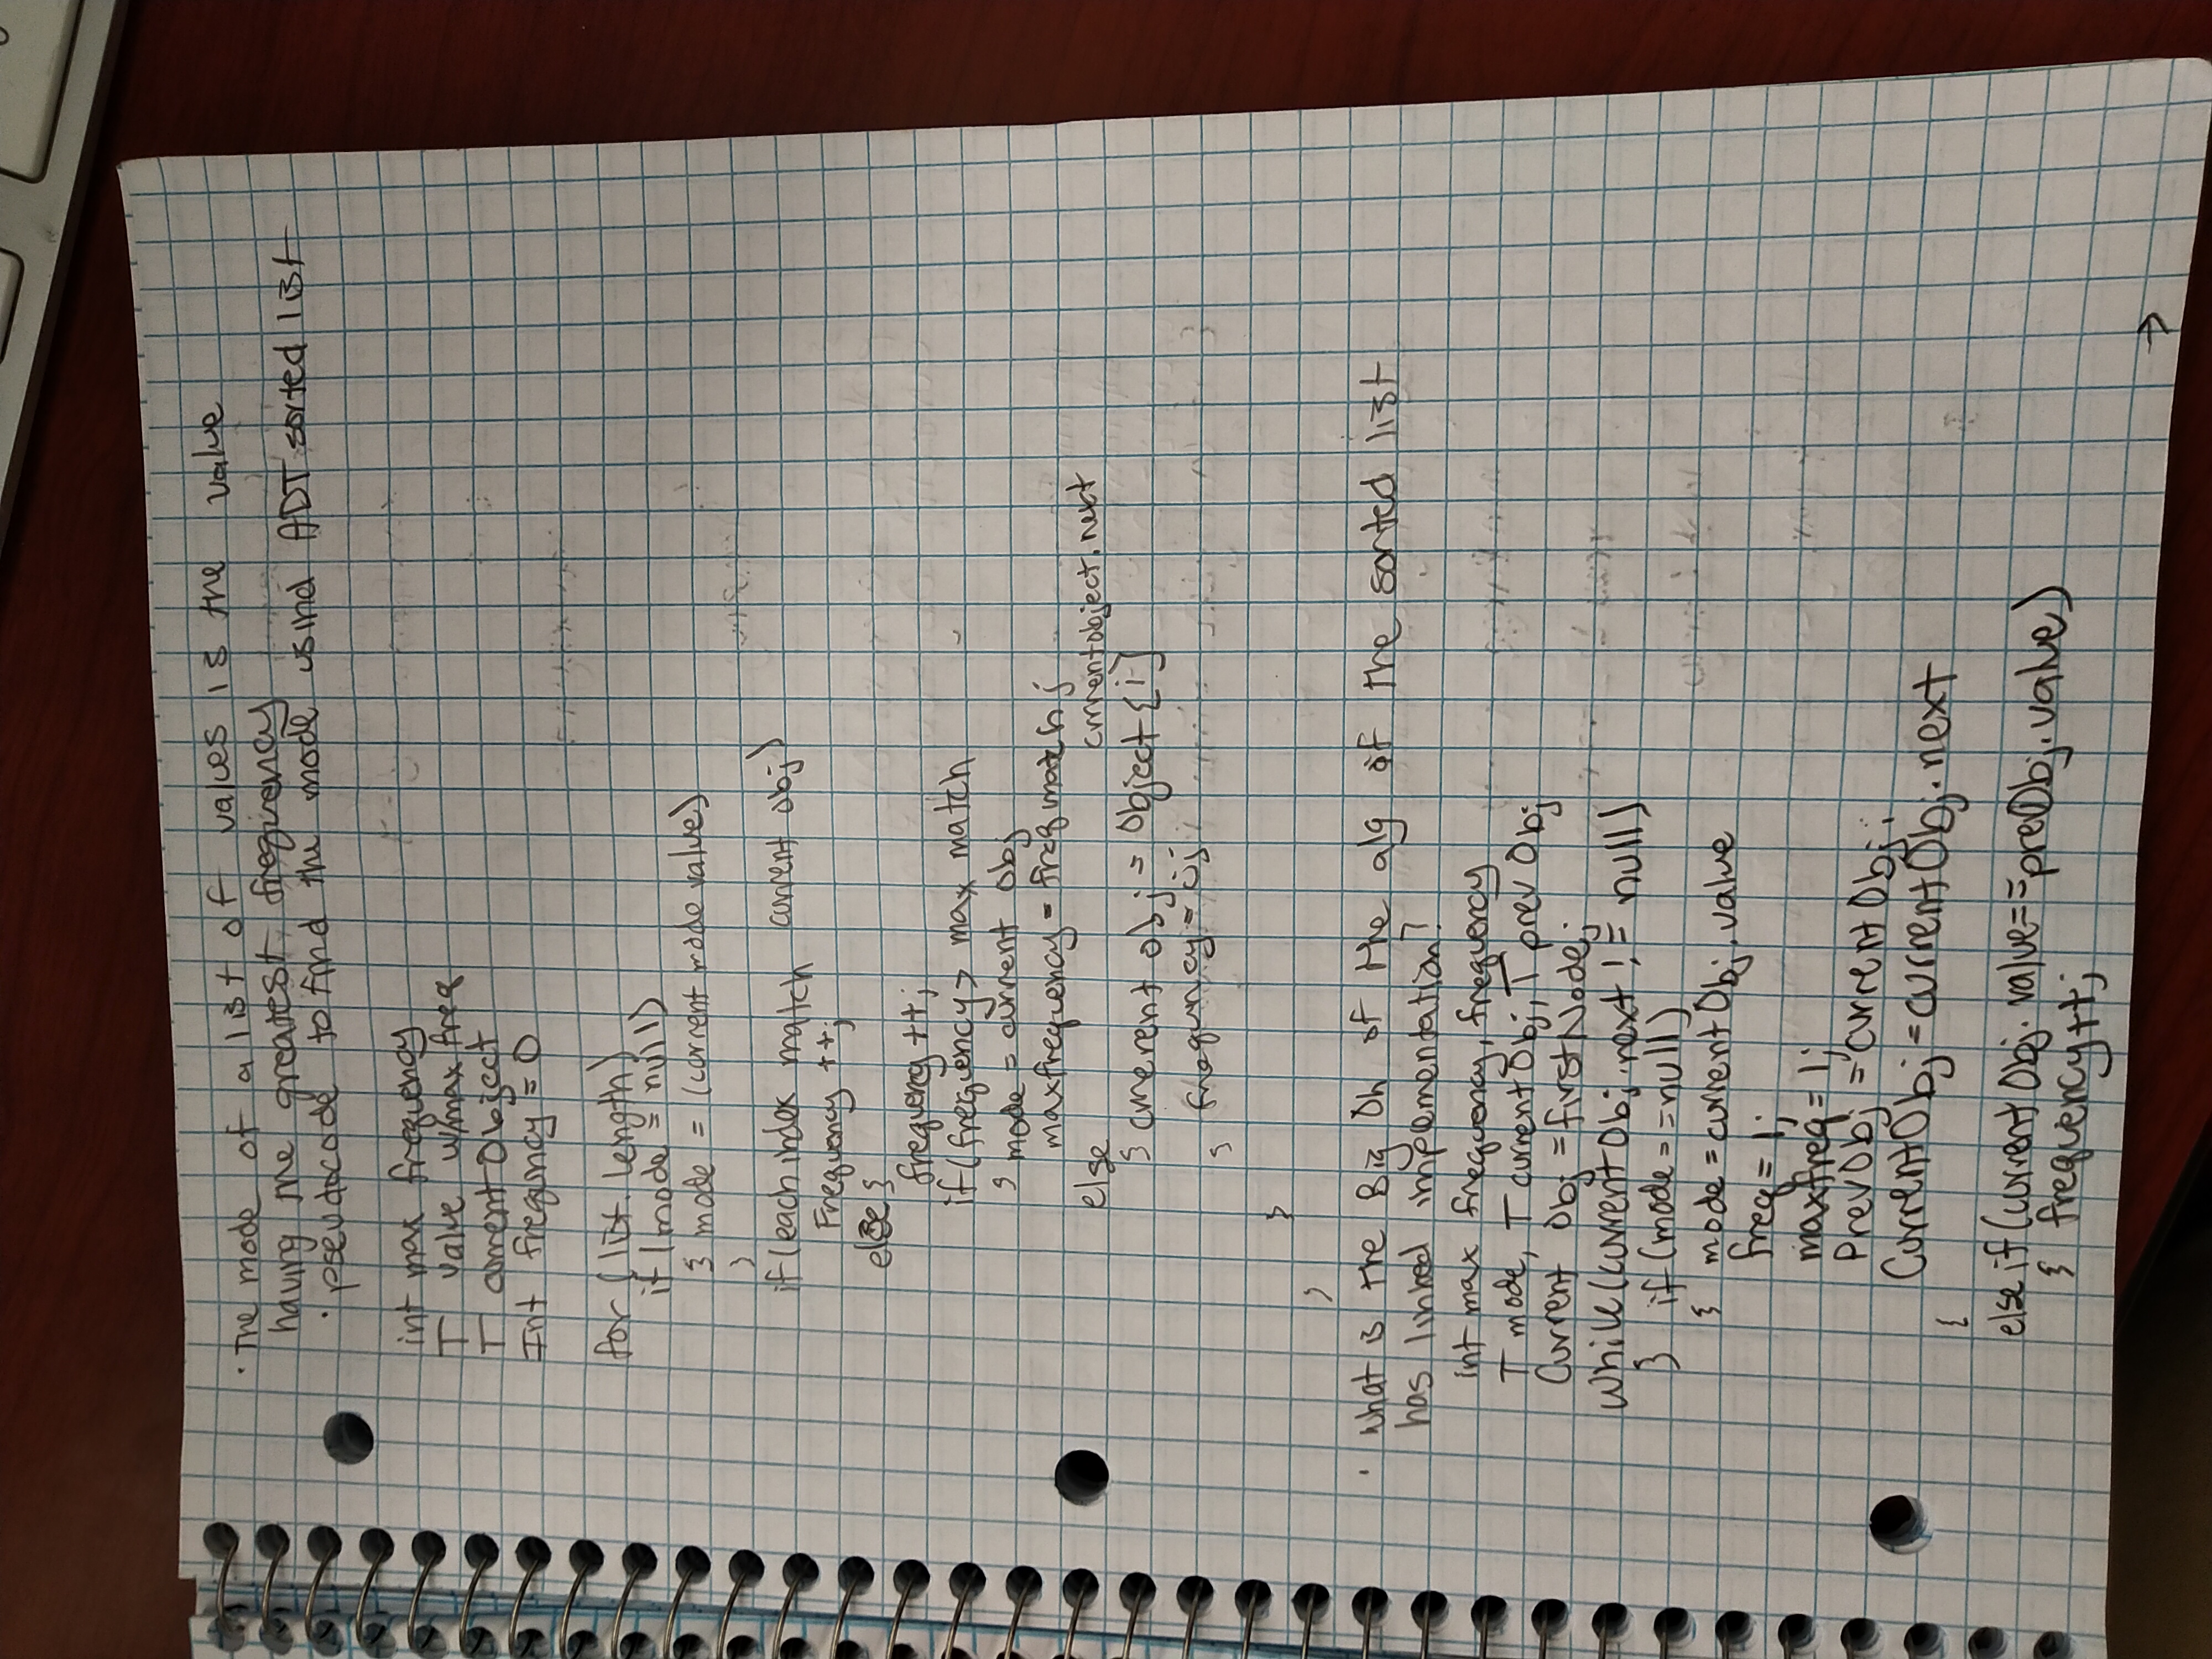 · The mode of a list of values is the value
having the greatest frequency
· pseudocode to find the mode usind ADT sorted list
int max frequency
T value w/max freq
T current Object
Int frequncy = 0
for (list. length)
if (mode = null)
{ mode = (current mode value)
}
if (each index match current obj)
Frequency ++;
else {
frequency ++;
if (frequency > max match
{ mode = current obj
maxfrequency = freq match ;
else
currentobject.next
{ current obj = Object {i]
frequncy = 0;
}
}
}
· what is the Big Oh of the alg of the sorted list
has linked implementation?
int max frequency, frequency
T mode, T currentObj, T prev Obj
Current Obj = firstNode;
while (currentObj.next != null)
} if (mode == null)
{ mode = currentObj.value
freq = 1;
maxfreq = 1;
PrevObj = currentObj;
CurrentObj = currentObj.next
{
else if (currentObj. value == prevObj.value)
{ frequency++;
→